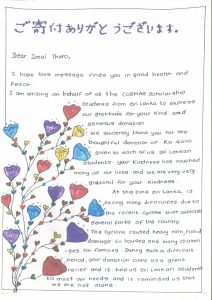 ご寄付ありがとうございます。
Dear Imai Thero,
I hope this message finds you in good health and
Peace.
I am writing on behalf of all the CoSMOS scholarship
Students from Sri Lanka to express
our gratitude for your kind and
generous donation
We sincerely thank you for the
thoughtful donation of Rs 4000
given to each of us Sri Lankan
Students. your kindness has touched
many of our lives and we are very
grateful for your kindness
At this time Sri Lanka is
facing many difficulties due to
the recent cyclone that affected
Several parts of the country
The Cyclone caused heavy rain, flood
damage to houses and many challen
ges for families. During such a difficult
Period, your donation came as a great
relief and it help us Sri Lankan Students
to meet our needs and it reminded us that
we are not alone